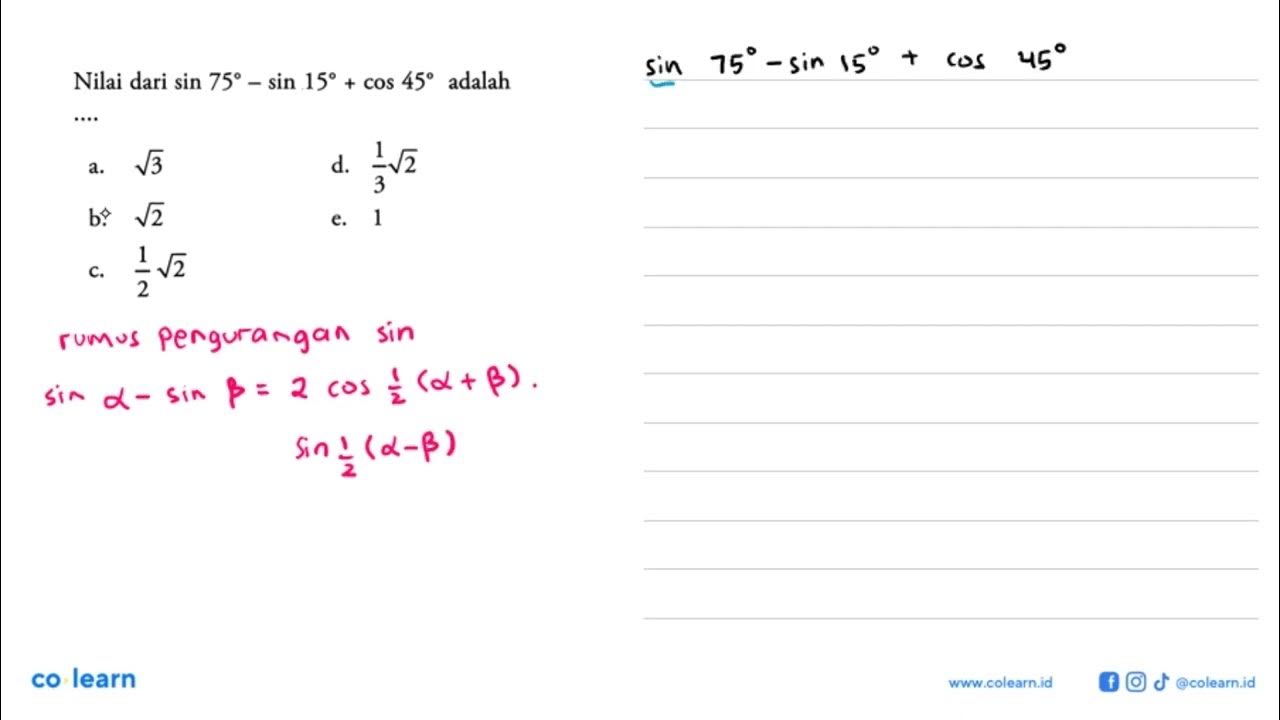 Nilai dari sin 75° – sin 15° + cos 45° adalah
....
a. √3
b. √2
c. 1/2 √2
d. 1/3 √2
e. 1
rumus pengurangan sin
sin α - sin β = 2 cos 1/2 (α + β) .
sin 1/2 (α - β)
sin 75° - sin 15° + cos 45°
co learn
www.colearn.id
@colearn.id